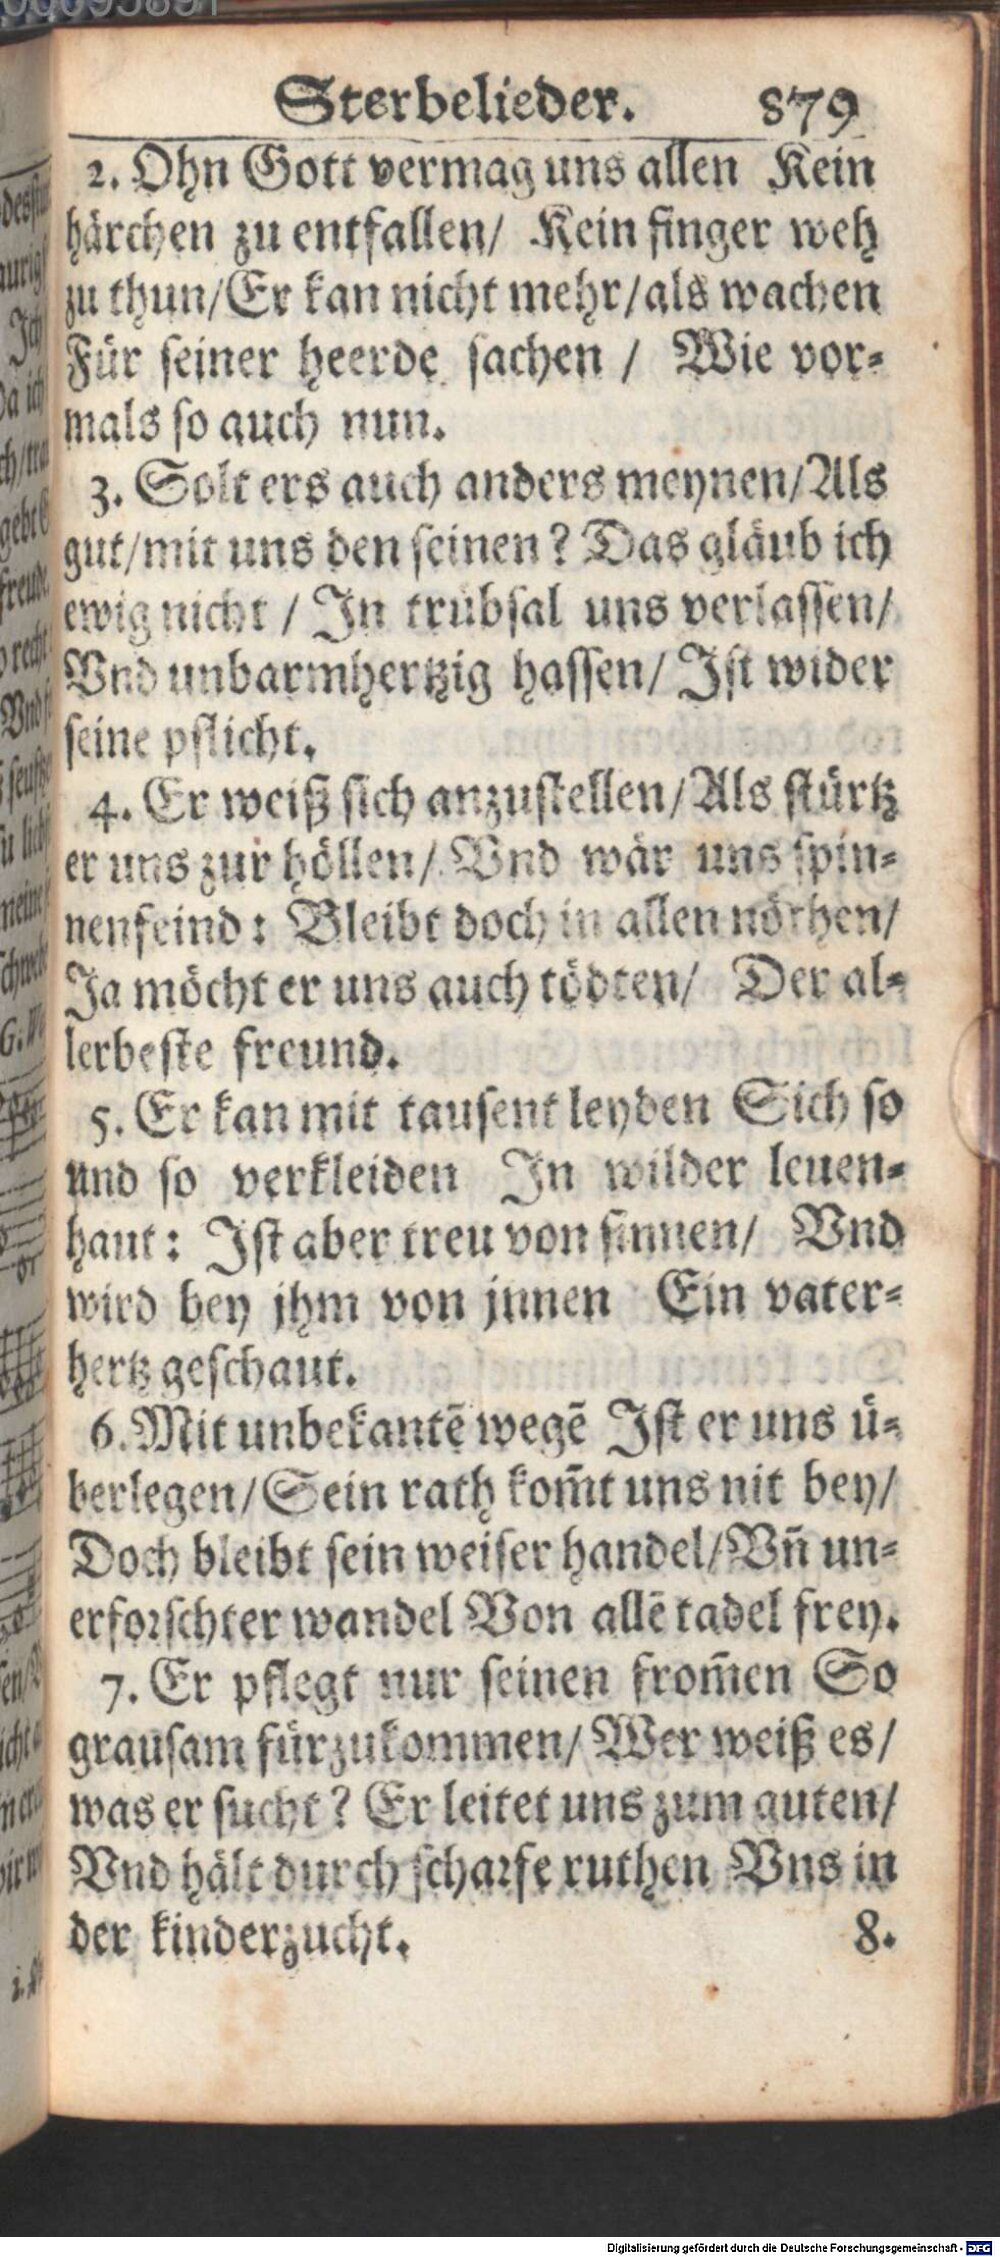 Sterbelieder. 879
2. Ohn Gott vermag uns allen Kein
härchen zu entfallen/ Kein finger weh
zu thun/Er kan nicht mehr/als wachen
Für seiner heerde sachen / Wie vor-
mals so auch nun.
3. Solt ers auch anders meynen/Als
gut/mit uns den seinen? Das gläub ich
ewig nicht / In trübsal uns verlassen/
Vnd unbarmhertzig hassen/ Ist wider
seine pflicht.
4. Er weiß sich anzustellen/Als stürtz
er uns zur höllen/ Vnd wär uns spin-
nenfeind: Bleibt doch in allen nöthen/
Ja möcht er uns auch tödten/ Der al-
lerbeste freund.
5. Er kan mit tausent leyden Sich so
und so verkleiden In wilder leuen-
haut: Ist aber treu von sinnen/ Vnd
wird bey jhm von jnnen Ein vater-
hertz geschaut.
6. Mit unbekantē wegē Ist er uns ü-
berlegen/Sein rath kom̃t uns nit bey/
Doch bleibt sein weiser handel/Vñ un-
erforschter wandel Von allē tadel frey.
7. Er pflegt nur seinen from̃en So
grausam fürzukommen/Wer weiß es/
was er sucht? Er leitet uns zum guten/
Vnd hält durch scharfe ruthen Vns in
der kinderzucht. 8.
Digitalisierung gefördert durch die Deutsche Forschungsgemeinschaft - DFG